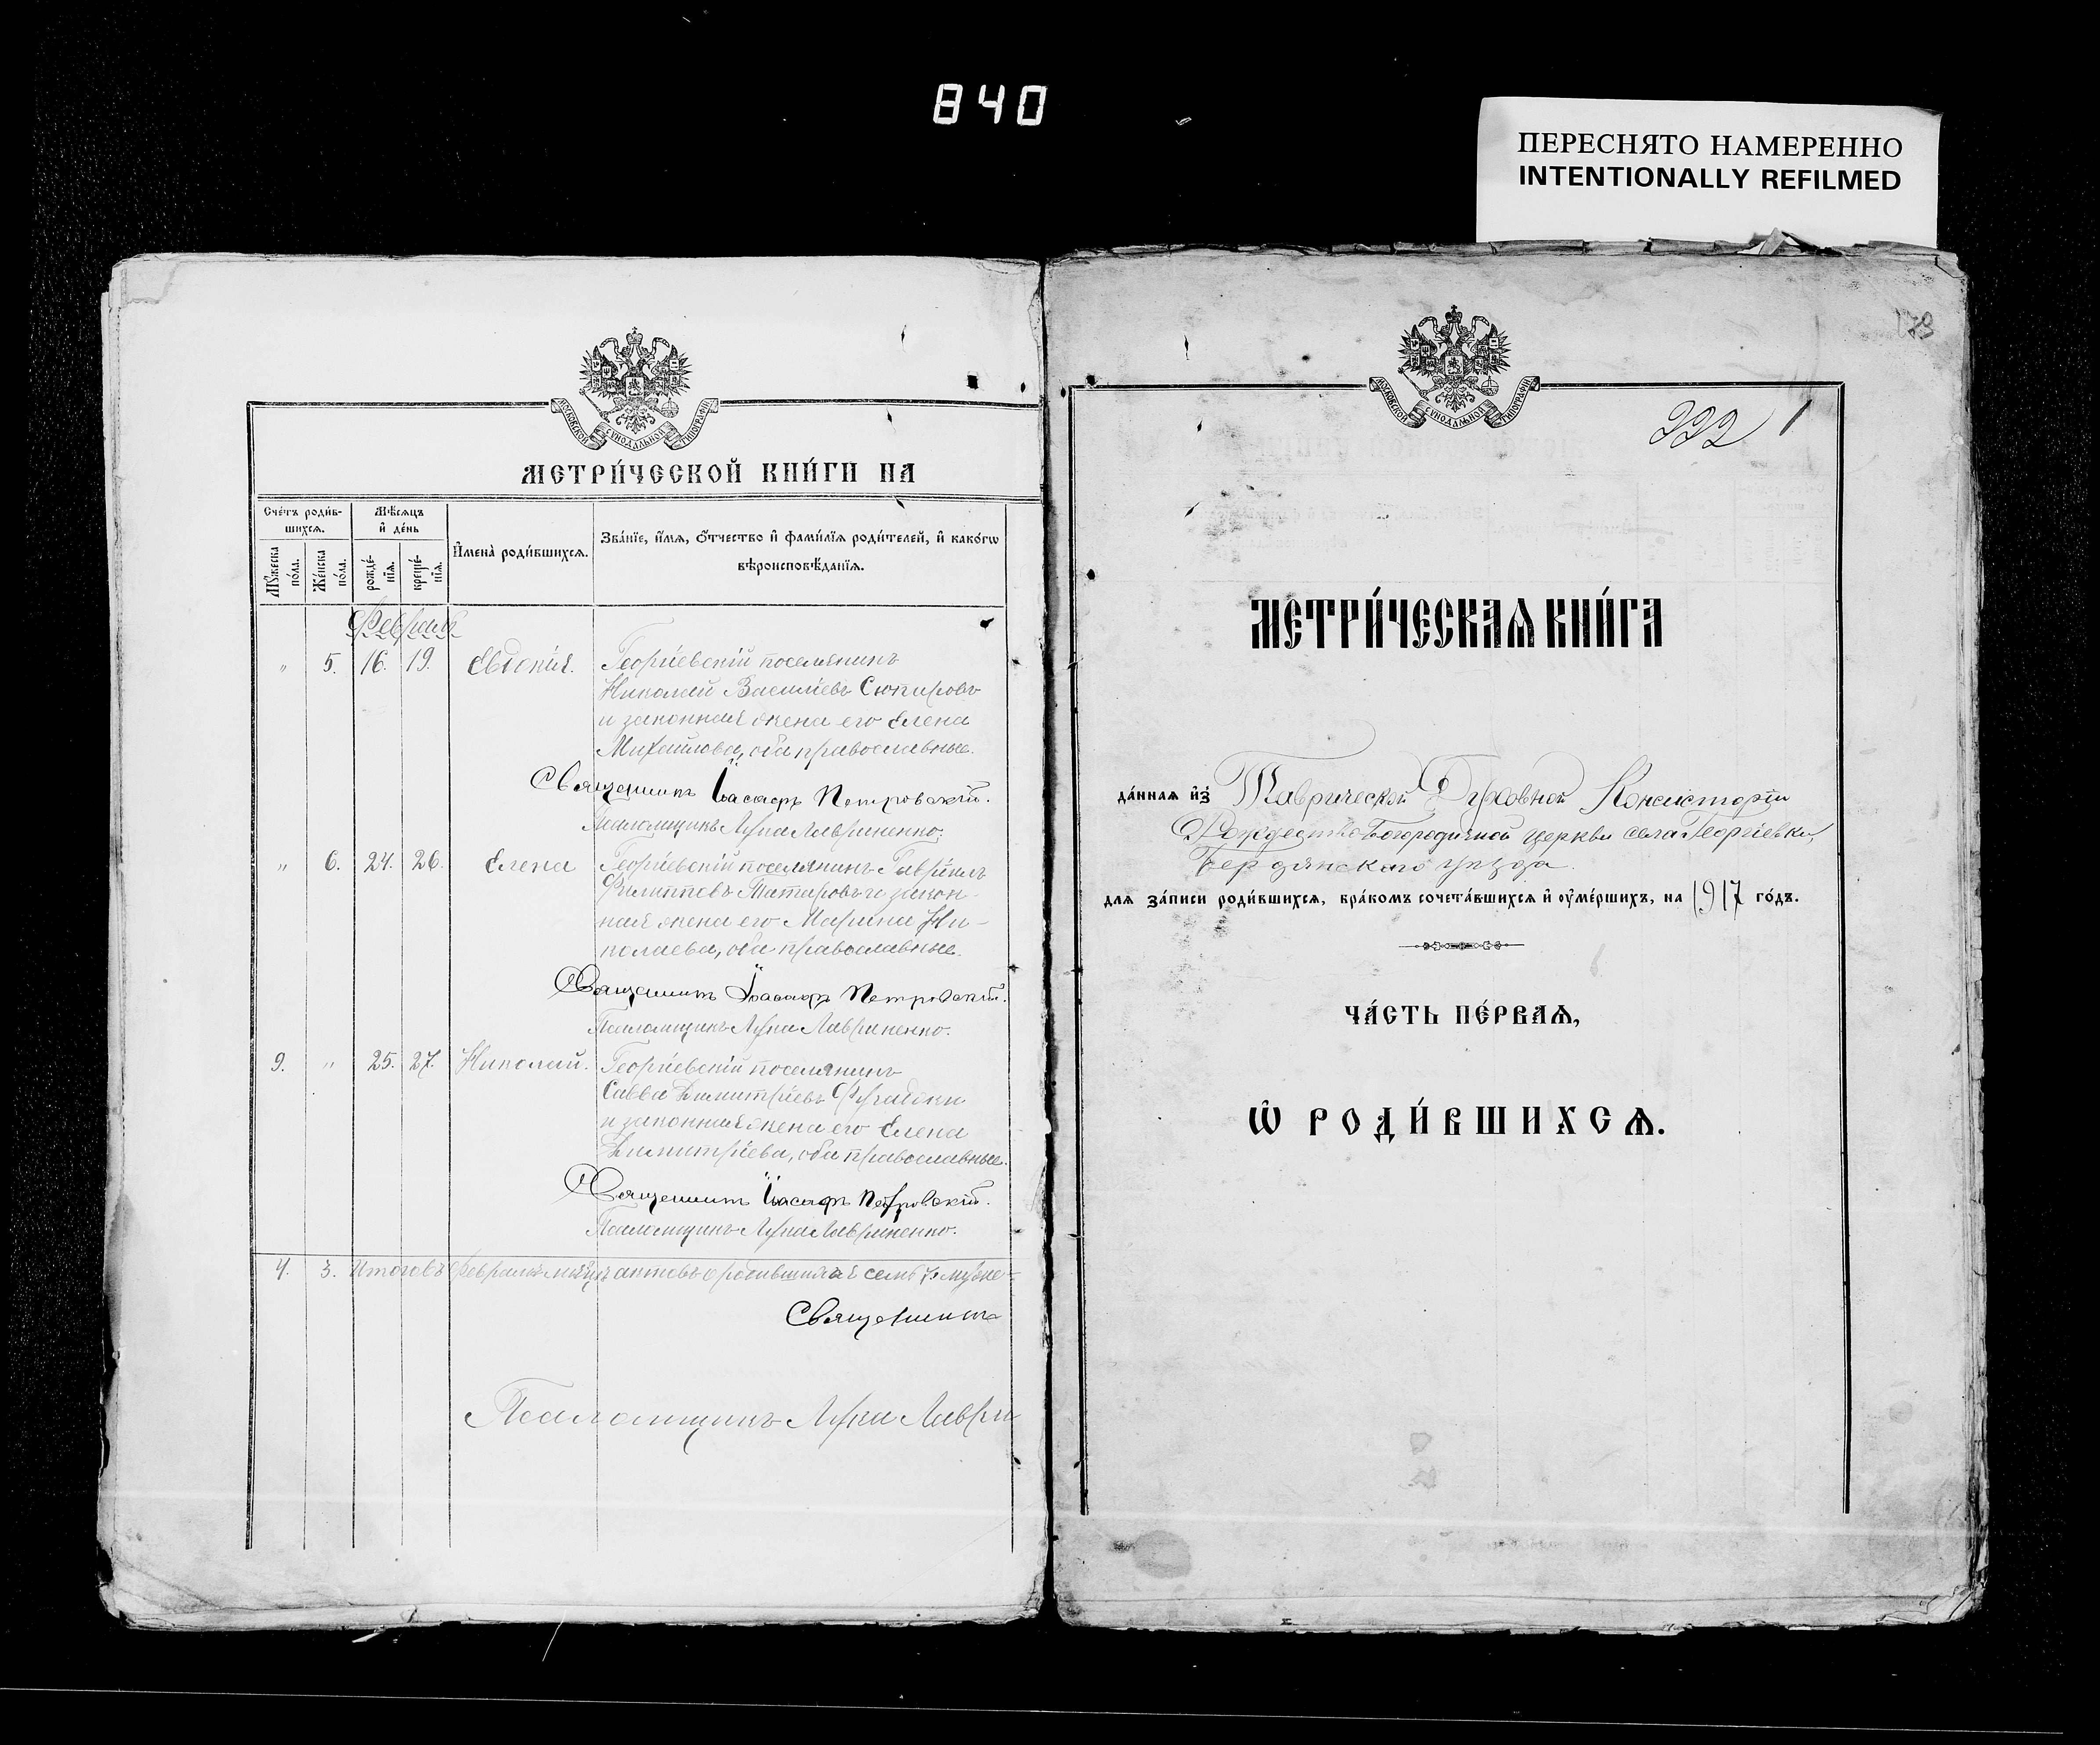 840
ПЕРЕСНЯТО НАМЕРЕННО
INTENTIONALLY REFILMED
МОСКОВСКОЙ СѴНОДАЛЬНОЙ ТИПОГРАФІИ
МЕТРИ́ЧЕСКОЙ КНИ́ГИ НА
Сче́тъ роди́в-
шихсѧ.
Мѣ́сѧцъ
и҆ де́нь
И҆мена̀ роди́вшихсѧ.
Зва́нїе, и҆́мѧ, ѻ҆́тчество и҆ фами́лїѧ роди́телей, и҆ како́гѡ
вѣроисповѣ́данїѧ.
Мꙋ́жеска
по́ла.
Же́нска
по́ла.
рожде́-
нїѧ.
креще́-
нїѧ.
Февраль
" 5. 16. 19. Евдокія. Георгіевскій поселянинъ
Николай Васильевъ Сюпировъ
и законная жена его Елена
Михайлова, оба православные.
Священникъ Іоасафъ Петровскій.
Псаломщикъ Лука Лавриненко.
" 6. 24. 26. Елена Георгіевскій поселянинъ Гавріилъ
Филипповъ Татаровъ и закон-
ная жена его Марина Ни-
колаева, оба православные.
Священникъ Іоасафъ Петровскій.
Псаломщикъ Лука Лавриненко.
9. " 25. 27. Николай. Георгіевскій поселянинъ
Савва Димитріевъ
и законная жена его Елена
Димитріева, оба православные.
Священникъ Іоасафъ Петровскій.
Псаломщикъ Лука Лавриненко.
4. 3. Итого въ февралѣ мѣсяцѣ актовъ о родившихся семь 7. муже-
Священникъ
Псаломщикъ Лука Лаври
178
МОСКОВСКОЙ СѴНОДАЛЬНОЙ ТИПОГРАФІИ
222 1
МЕТРИ́ЧЕСКАѦ КНИ́ГА
да́ннаѧ и҆з̾ Таврической Духовной Консисторіи
Рождество-Богородичной церкви села Георгіевки,
Бердянскаго уѣзда.
для за́писи роди́вшихсѧ, бра́комъ сочета́вшихсѧ и҆ оу҆ме́ршихъ, на 1917 го́дъ.
ЧА́СТЬ ПЕ́РВАѦ,
Ѡ҆ РОДИ́ВШИХСѦ.